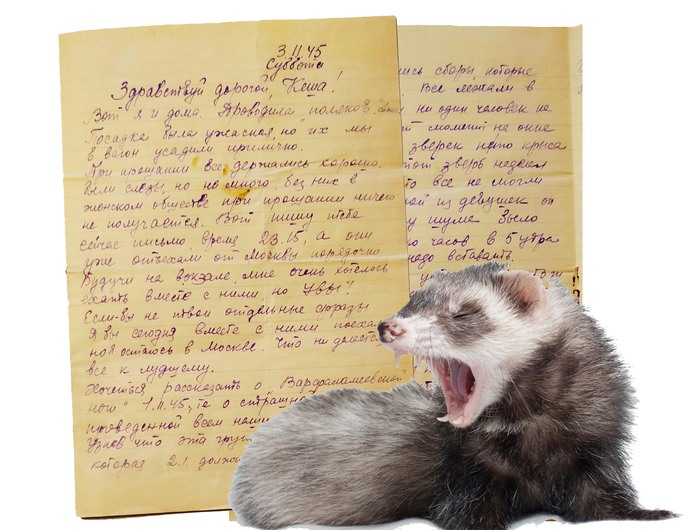 3.11.45
Суббота
Здравствуй дорогой, Кеша!
Вот я и дома. Проводила "поляков".
Посадка была ужасная, но "их" мы
в вагон усадили прилично.
При прощании все держались хорошо.
были слезы, но немного, без них в
женском обществе при прощании ничего
не получается. Вот пишу тебе
сейчас письмо, время 23.15, а они
уже отъехали от Москвы порядочно.
Будучи на вокзале, мне очень хотелось
ехать вместе с ними, но увы!
Если-бы не твои отдельные фразы
Я бы сегодня вместе с ними поехала
но я осталась в Москве. Что ни делается
все к лучшему.
Хочется рассказать о "Варфоломеевской
ночи" 1.11.45, т.е о страшной
проведенной всем наши
Узнав что эта груп
которая 2.1. должна
сборы, которые
Все лежали в
ни один человек не
момент, на окне
зверек на-то крыса
этот зверь наделал
то все не могли
ой из девушек от
шума. Было
часов в 5 утра
надо вставать.